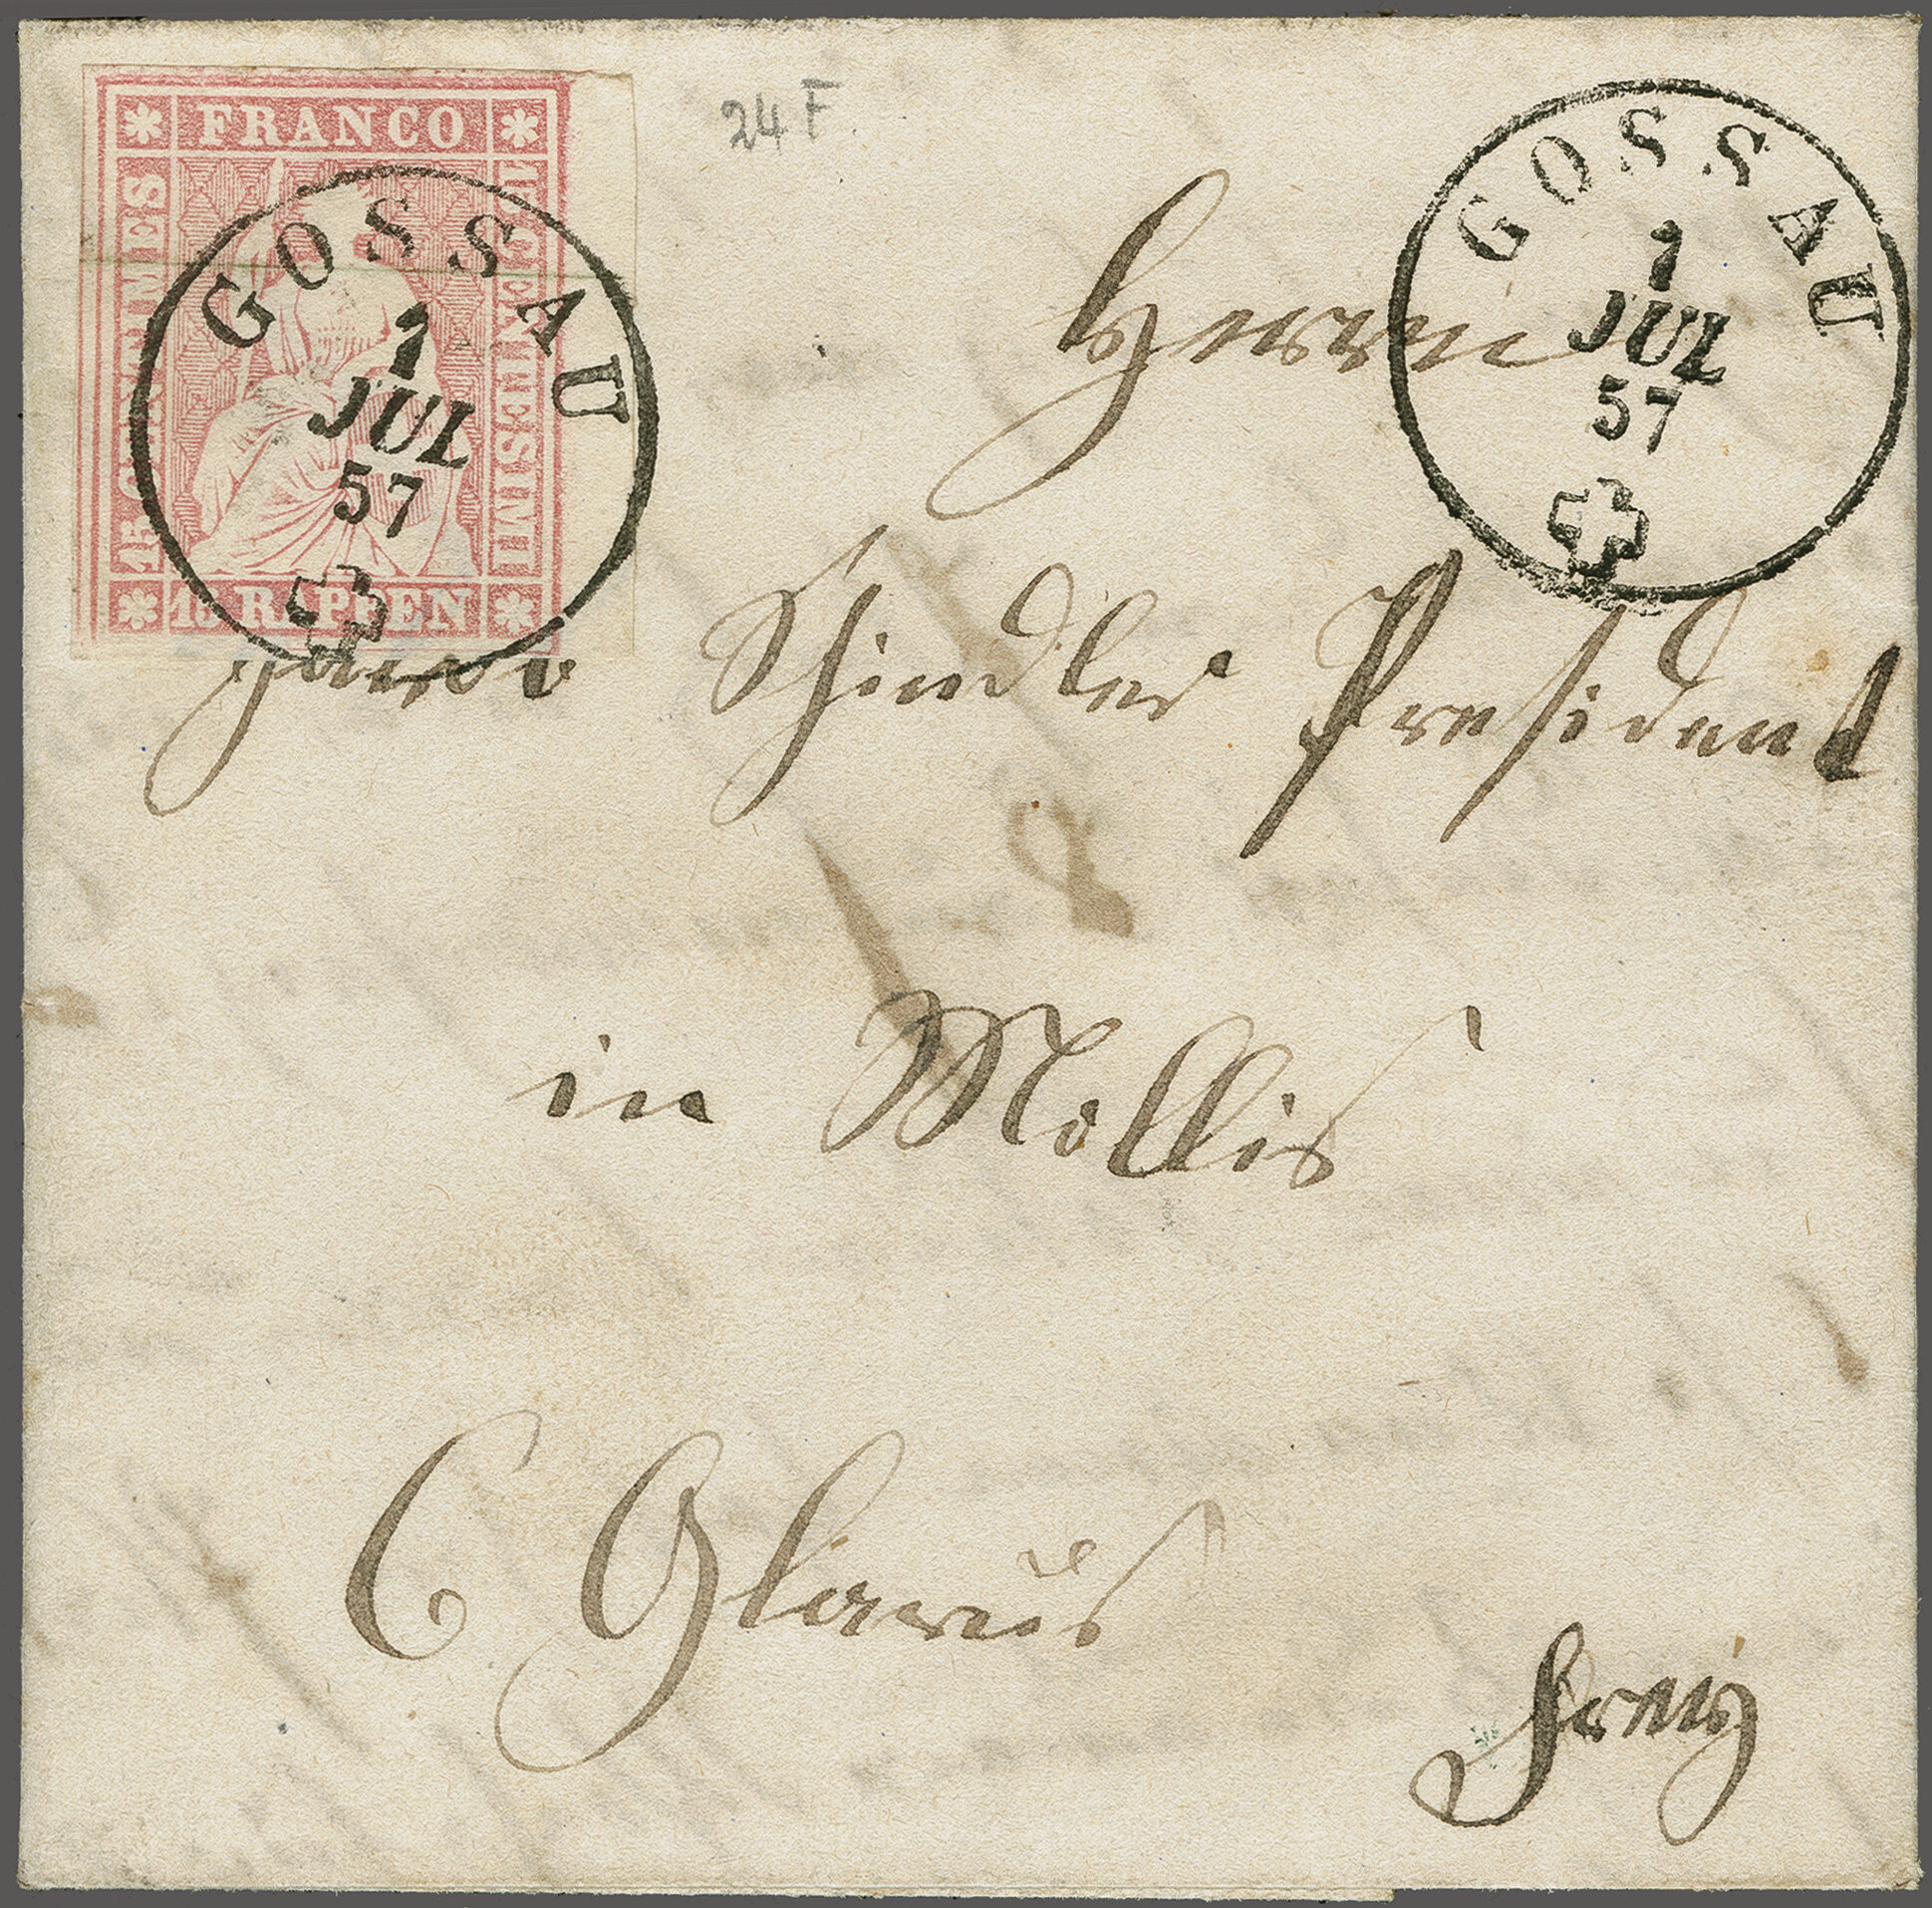 FRANCO
15 CENTIMES
15 CENTESIMI
15 RAPPEN
GOSSAU
1
JUL
57
24 F
GOSSAU
1
JUL
57
Herrn
Jacob Schindler President
in Mollis
C Glarus